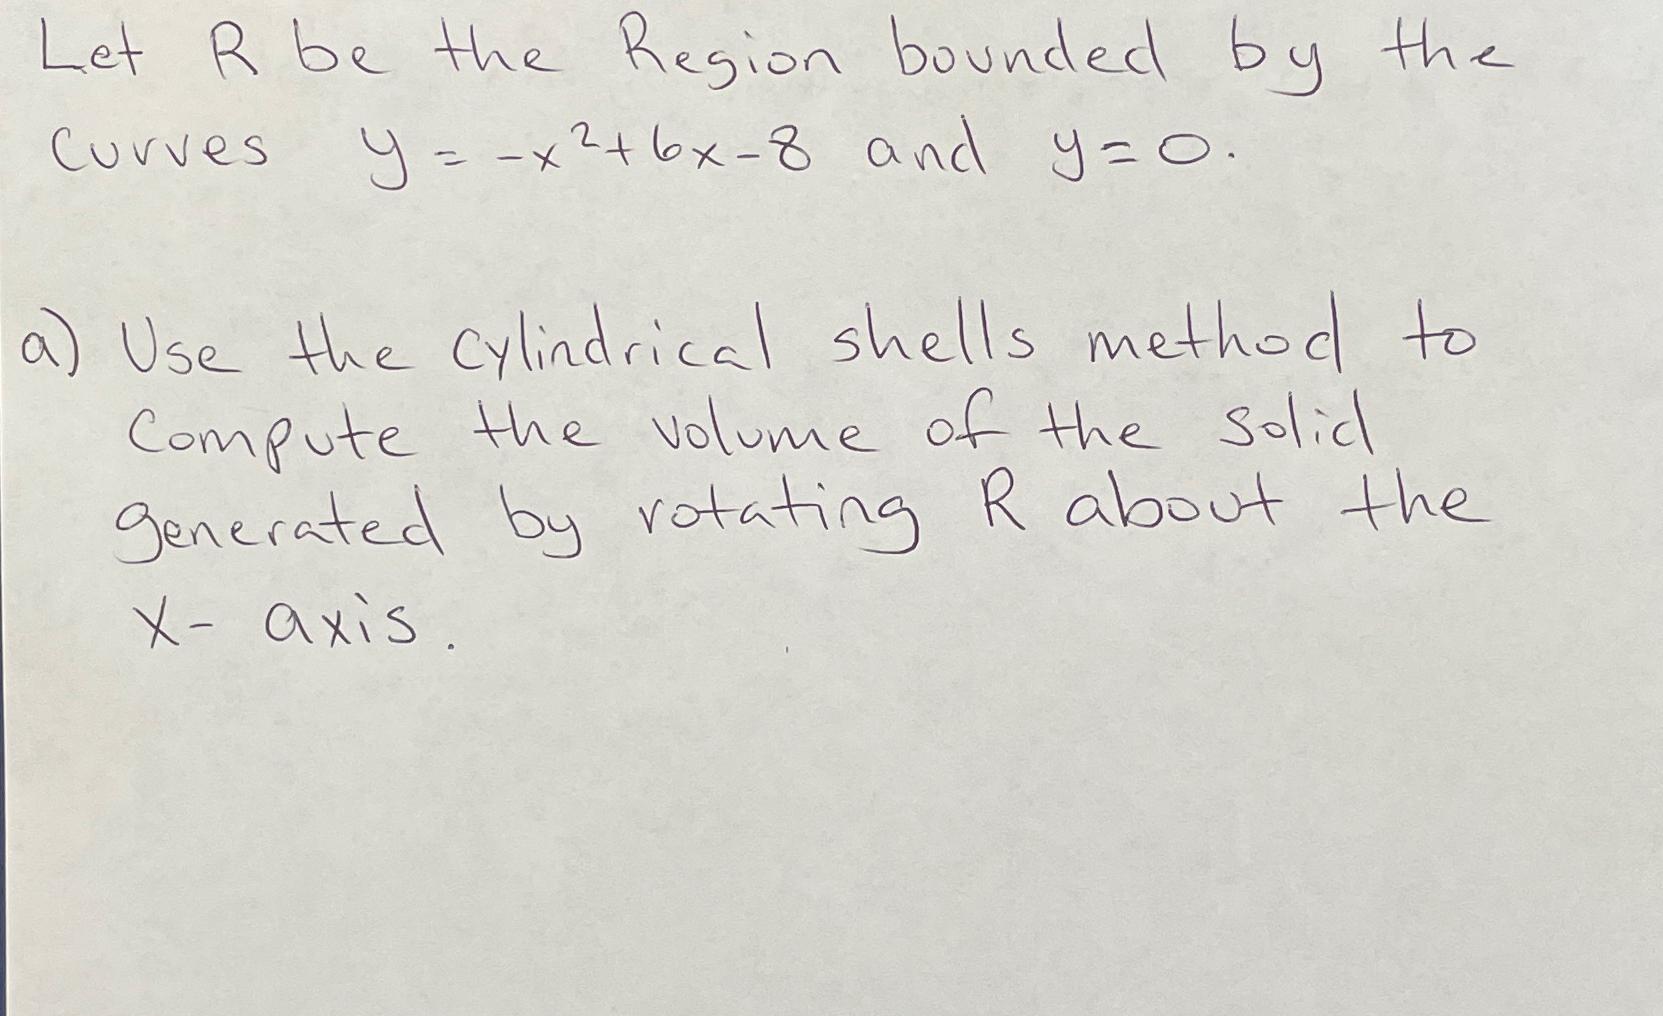 Let R be the Region bounded by the
curves y = -x²+6x-8 and y=0.
a) Use the cylindrical shells method to
compute the volume of the solid
generated by rotating R about the
x- axis.